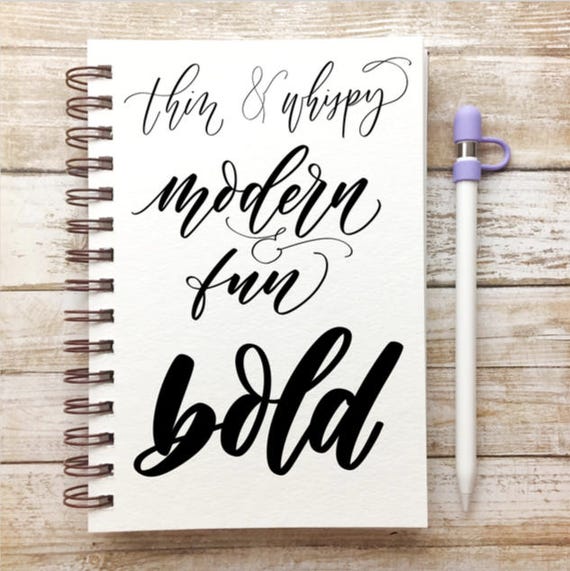 thin & whispy
modern
&
fun
bold